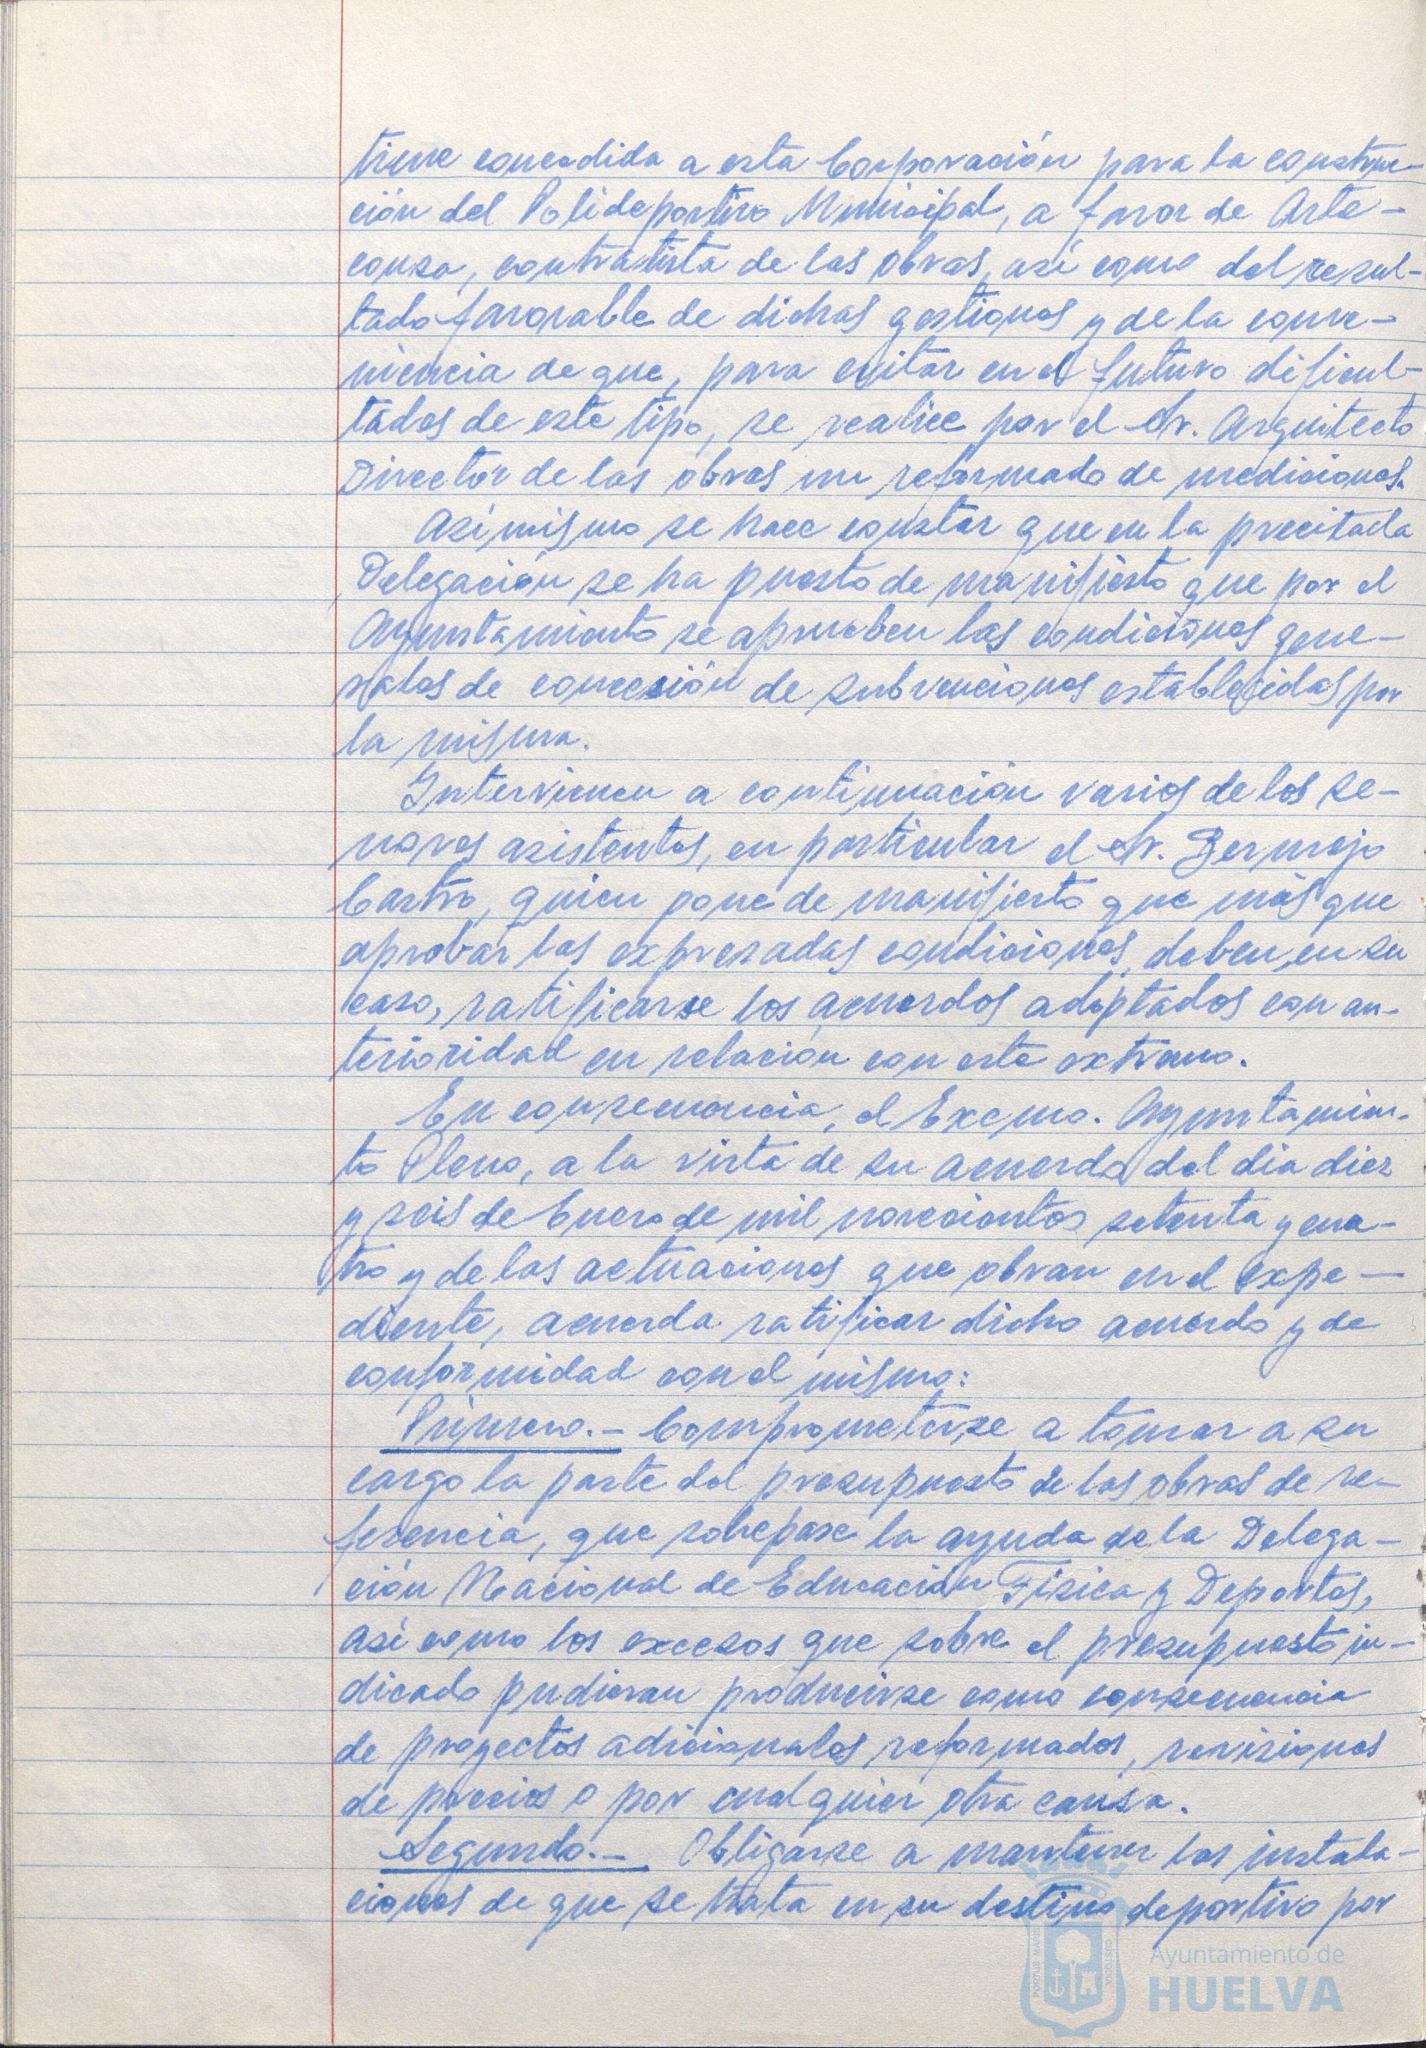 tiene concedida a esta Corporación para la construc-
ción del Polideportivo Municipal, a favor de Arte-
consa, contratista de las obras, así como del resul-
tado favorable de dichas gestiones y de la conve-
niencia de que, para evitar en el futuro dificul-
tades de este tipo, se realice por el Sr. Arquitecto
Director de las obras un reformado de mediciones.
Asimismo se hace constar que en la precitada
Delegación se ha puesto de manifiesto que por el
Ayuntamiento se aprueben las condiciones gene-
rales de concesión de subvenciones establecidas por
la misma.
Intervienen a continuación varios de los se-
nores asistentes, en particular el Sr. Bermejo
Castro, quien pone de manifiesto que más que
aprobar las expresadas condiciones, deben, en su
caso, ratificarse los acuerdos adoptados con an-
terioridad en relación con este extremo.
En consecuencia, el Excmo. Ayuntamien-
to Pleno, a la vista de su acuerdo del dia diez
y seis de Enero de mil novecientos setenta y cua-
tro y de las actuaciones que obran en el expe-
diente, acuerda ratificar dicho acuerdo y de
conformidad con el mismo:
Primero.- Comprometerse a tomar a su
cargo la parte del presupuesto de las obras de re-
ferencia, que sobrepase la ayuda de la Delega-
ción Nacional de Educación Física y Deportes,
así como los excesos que sobre el presupuesto in-
dicado pudieran producirse como consecuencia
de proyectos adicionales reformados, revisiones
de precios o por cualquier otra causa.
Segundo.- Obligarse a mantener las instala-
ciones de que se trata en su destino deportivo por
Ayuntamiento de
HUELVA